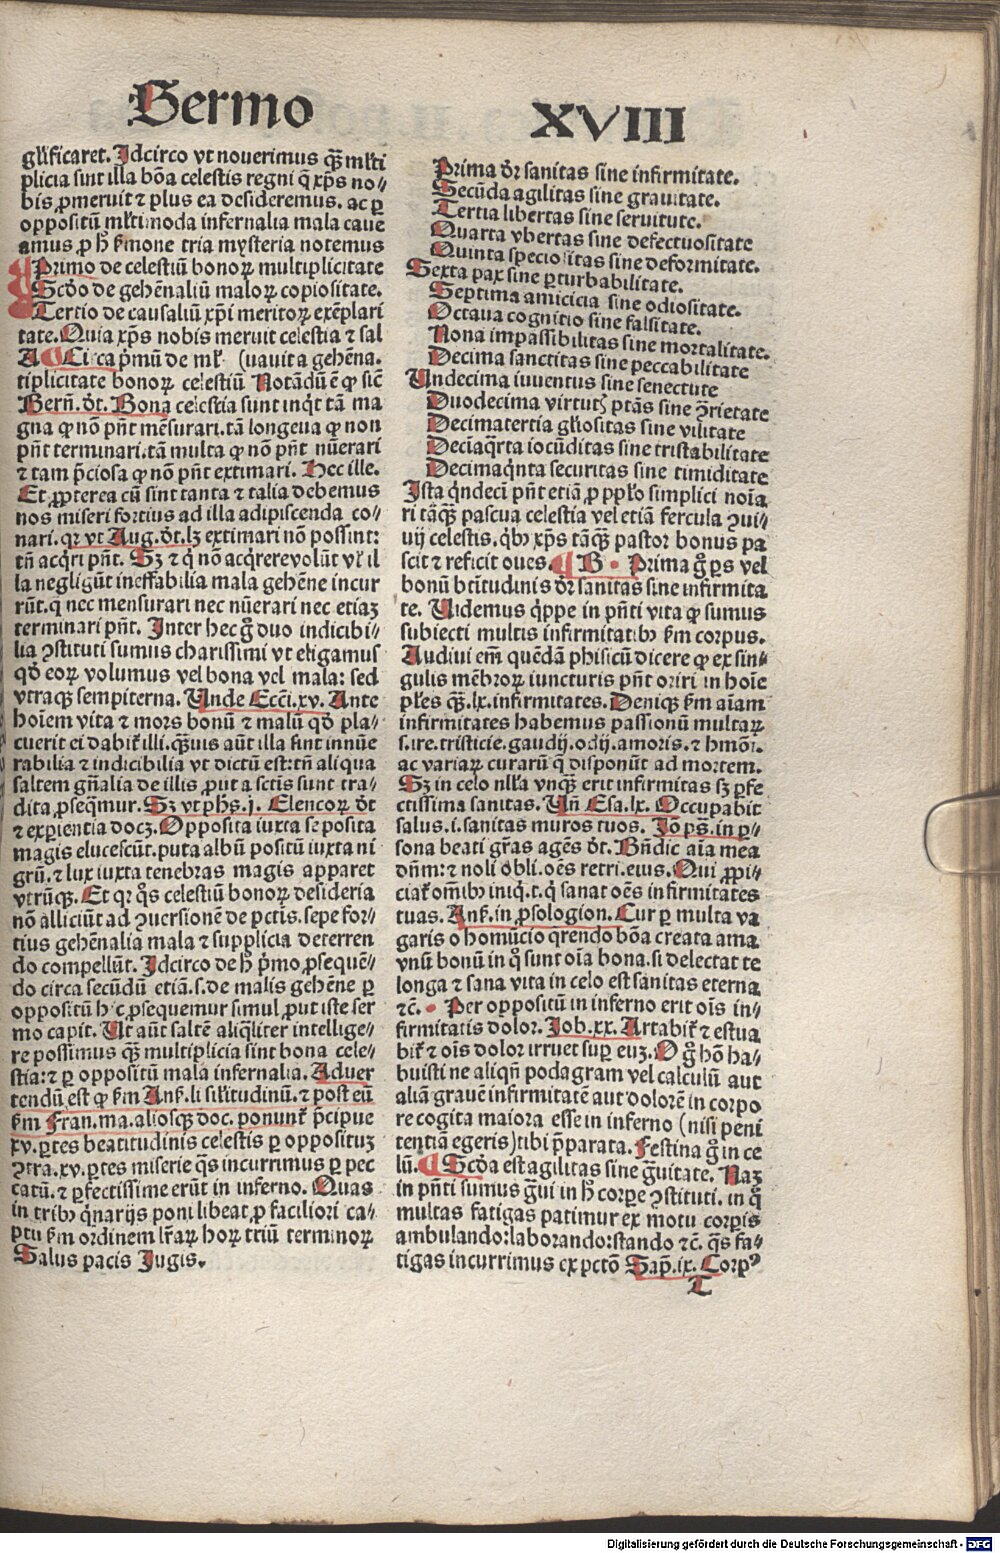 Sermo XVIII
gl'ificaret. Idcirco vt nouerimus qȝ̄ ml'ti
plicia sunt illa bōa celestis regni q̄ xp̄s no⸗
bis ꝓmeruit ⁊ plus ea desideremus. ac ꝑ
oppositū ml'timoda infernalia mala caue
amus ꝓ hͦ ẜmone tria mysteria notemus
Primo de celestiū bonoꝝ multiplicitate
Scd̄o de gehēnaliū maloꝝ copiositate.
Tertio de causaliū xp̄i meritoꝝ exēplari
tate. Quia xp̄s nobis meruit celestia ⁊ sal
A Circa pͥmū de ml' (uauit a gehēna.
tiplicitate bonoꝝ celestiū Notādū ē ꝙ sic̄
Bern̄. dt̄. Bona celestia sunt inqͥt tā ma
gna ꝙ nō pn̄t mēsurari. tā longeua ꝙ non
pn̄t terminari. tā multa ꝙ nō pn̄t nūerari
⁊ tam p̄ciosa ꝙ nō pn̄t extimari. Hec ille.
Et ꝓpterea cū sint tanta ⁊ talia debemus
nos miseri fortius ad illa adipiscenda co⸗
nari. qꝛ vt Aug. dt̄. lȝ extimari nō possint:
tn̄ acq̄ri pn̄t. Sȝ ⁊ qͥ nō acq̄rere volūt vl' il
la negligūt ineffabilia mala gehēne incur
rūt. q̄ nec mensurari nec nūerari nec etiaȝ
terminari pn̄t. Inter hec gͦ duo indicibi⸗
lia ꝯstituti sumus charissimi vt eligamus
qd̄ eoꝝ volumus vel bona vel mala: sed
vtraqȝ sempiterna. Unde Ecci. xv. Ante
hoīem vita ⁊ mors bonū ⁊ malū qd̄ pla⸗
cuerit ei dabit͛ illi. qȝ̄uis aūt illa sint innūe
rabilia ⁊ indicibilia vt dictū est: tn̄ aliqua
saltem gn̄alia de illis ꝓut a sctīs sunt tra⸗
dita ꝓseqͣmur. Sȝ vt phs̄. j. Elencoꝝ dt̄
⁊ exꝑientia docȝ. Opposita iuxta se posita
magis elucescūt. puta albū positū iuxta ni
grū. ⁊ lux iuxta tenebras magis apparet
vtrūqȝ. Et qꝛ qͦs celestiū bonoꝝ desideria
nō alliciūt ad ꝯuersionē de pctīs. sepe for⸗
tius gehēnalia mala ⁊ supplicia deterren
do compellūt. Idcirco de hͦ pͥmo ꝓsequē⸗
do circa secūdū etiā. s. de malis gehēne ꝑ
oppositū hͥc ꝓsequemur simul ꝓut iste ser
mo capit. Ut aūt saltē aliqͣliter intellige⸗
re possimus qȝ̄ multiplicia sint bona cele⸗
stia: ⁊ ꝑ oppositū mala infernalia. Aduer
tendū est ꝙ ẜm Anẜ. li. sil'itudinū. ⁊ post eū
ẜm Fran. ma. aliosqȝ doc. ponunt͛ p̄cipue
xv. ꝑtes beatitudinis celestis ꝑ oppositūȝ
ꝯtra. xv. ꝑtes miserie qͣs incurrimus ꝑ pec
catū. ⁊ ꝑfectissime erūt in inferno. Quas
in tribꝰ qͥnarijs poni libeat ꝓ faciliori ca⸗
ptu ẜm ordinem lr̄aꝝ hoꝝ triū terminoꝝ
Salus pacis Iugis.
Prima dr̄ sanitas sine infirmitate.
Secūda agilitas sine grauitate.
Tertia libertas sine seruitute.
Quarta vbertas sine defectuositate
Quinta speciositas sine deformitate.
Sexta pax sine ꝑturbabilitate.
Septima amicicia sine odiositate.
Octaua cognitio sine falsitate.
Nona impassibilitas sine mortalitate.
Decima sanctitas sine peccabilitate
Undecima iuuentus sine senectute
Duodecima virtutꝭ ptās sine ꝯrietate
Decimatertia gl'ositas sine vilitate
Decīaqͣrta iocūditas sine tristabilitate
Decimaqͥnta securitas sine timiditate
Ista qͥndecī pn̄t etiā ꝓ ppl'o simplici noīa
ri tāqȝ̄ pascua celestia vel etiā fercula ꝯui⸗
uij celestis. qͥbꝰ xp̄s tāqȝ̄ pastor bonus pa
scit ⁊ reficit oues. B. Prima gͦ ꝑs vel
bonū btītudinis dr̄ sanitas sine infirmita
te. Uidemus qͥppe in pn̄ti vita ꝙ sumus
subiecti multis infirmitatibꝰ ẜm corpus.
Audiui em̄ quēdā phisicū dicere ꝙ ex sin⸗
gulis mēbroꝝ iuncturis pn̄t oriri in hoīe
pl'es qȝ̄. lx. infirmitates. Deniqȝ ẜm aīam
infirmitates habemus passionū multaꝝ
s. ire. tristicie. gaudij. odij. amoris. ⁊ hmōi.
ac variaꝝ curarū q̄ disponūt ad mortem.
Sȝ in celo nll'a vnqȝ̄ erit infirmitas sȝ ꝑfe
ctissima sanitas. Un̄ Esa. lx. Occupabit
salus. i. sanitas muros tuos. Iō ps̄. in ꝑ⸗
sona beati gr̄as agēs dt̄. Bn̄dic aīa mea
dn̄m: ⁊ noli obli. oēs retri. eius. Qui ꝓpi⸗
ciat͛ oīmbꝰ iniqͥ. t. qͥ sanat oēs infirmitates
tuas. Anẜ. in ꝓsologion. Cur ꝑ multa va
garis o homūcio q̄rendo bōa creata ama
vnū bonū in qͦ sunt oīa bona. si delectat te
longa ⁊ sana vita in celo est sanitas eterna
⁊c̄. Per oppositū in inferno erit oīs in⸗
firmitatis dolor. Iob. xx. Artabit͛ ⁊ estua
bit͛ ⁊ oīs dolor irruet suꝑ euȝ. O gͦ hō ha⸗
buisti ne aliqn̄ podagram vel calculū aut
aliā grauē infirmitatē aut dolorē in corpo
re cogita maiora esse in inferno (nisi peni
tentiā egeris) tibi p̄parata. Festina gͦ in ce
lū. Scd̄a est agilitas sine gͣuitate. Naȝ
in pn̄ti sumus gͣui in hͦ corpe ꝯstituti. in qͦ
multas fatigas patimur ex motu corꝑis
ambulando: laborando: stando ⁊c̄. qͣs fa⸗
tigas incurrimus ex pctō Sap̄. ix. Corpꝰ
T
Digitalisierung gefördert durch die Deutsche Forschungsgemeinschaft - DFG